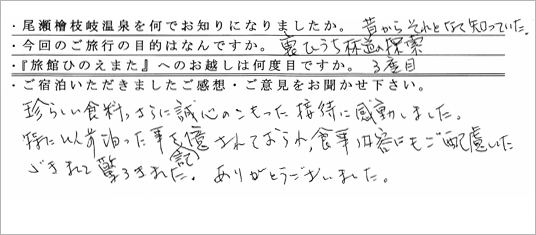 ・尾瀬檜枝岐温泉を何でお知りになりましたか。 昔からそれとなく知っていた。
・今回のご旅行の目的はなんですか。 裏ひうち林道の探索
・『旅館ひのえまた』へのお越しは何度目ですか。 3度目
・ご宿泊いただきましたご感想・ご意見をお聞かせ下さい。
珍らしい食料、さらに誠心のこもった接待に感動しました。
特に以前泊った事を記憶されておられ、食事内容にもご配慮いた
だきまして驚ろきました。ありがとうございました。